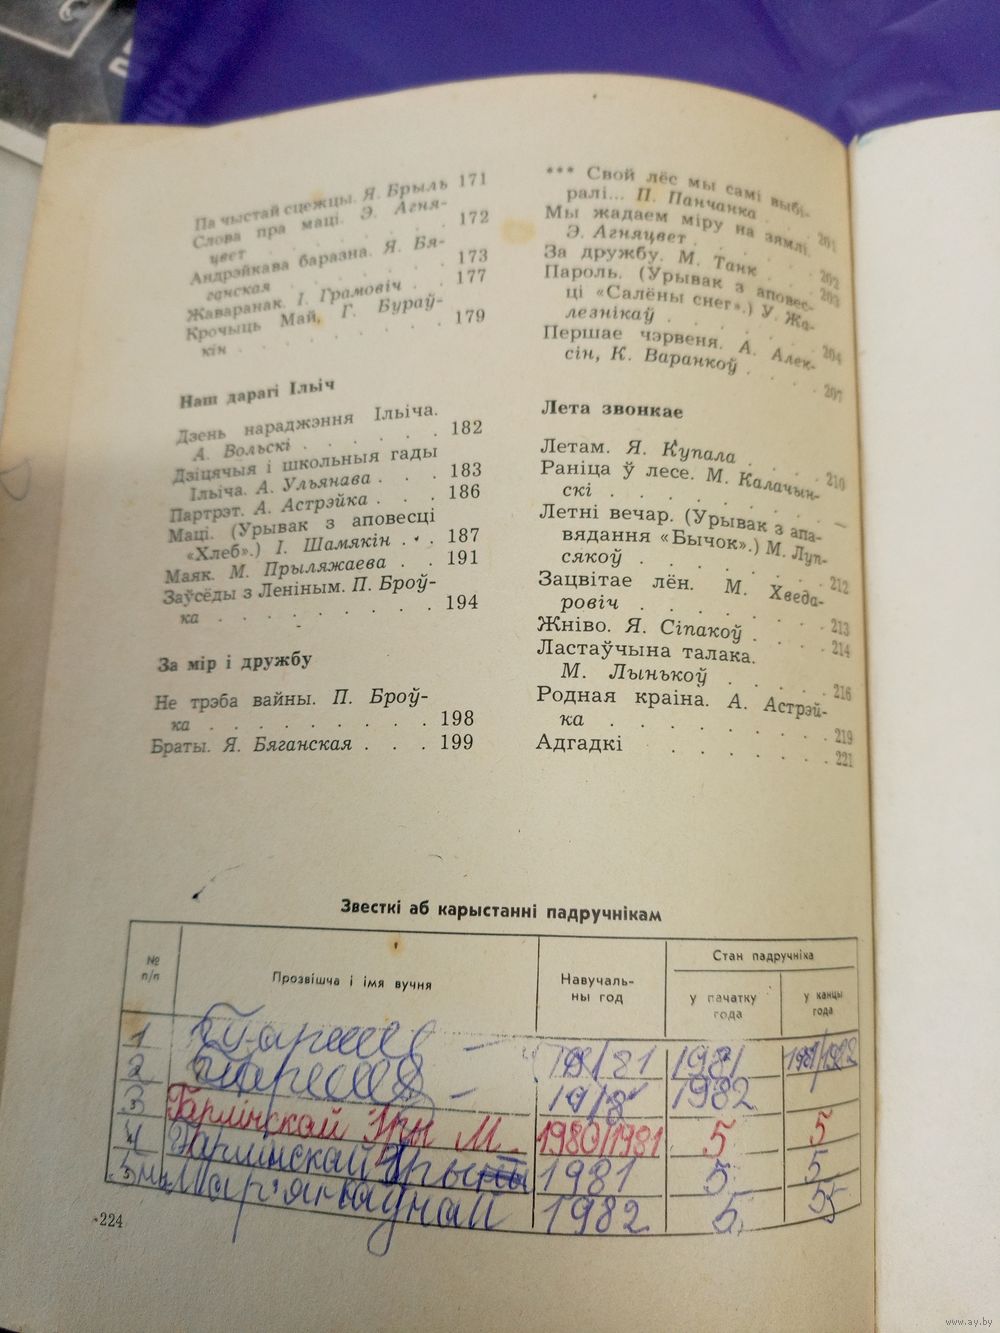 Па чыстай сцежцы. Я. Брыль 171
Слова пра маці. Э. Агня-
цвет . . . . . . . 172
Андрэйкава баразна. Я. Бя-
ганская . . . . . . 173
Жаваранак. І. Грамовіч . . 177
Крочыць Май, Г. Бураў-
кін . . . . . . . . 179
Наш дарагі Ільіч
Дзень нараджэння Ільіча.
А. Вольскі . . . . . . 182
Дзіцячыя і школьныя гады
Ільіча. А. Ульянава . . . 183
Партрэт. А. Астрэйка . . . 186
Маці. (Урывак з аповесці
«Хлеб».) І. Шамякін . . 187
Маяк. М. Прыляжаева . . 191
Заўсёды з Леніным. П. Броў-
ка . . . . . . . . 194
За мір і дружбу
Не трэба вайны. П. Броў-
ка . . . . . . . . . 198
Браты. Я. Бяганская . . . 199
*** Свой лёс мы самі выбі-
ралі... П. Панчанка . . 201
Мы жадаем міру на зямлі.
Э. Агняцвет . . . . . 202
За дружбу. М. Танк . . . 203
Пароль. (Урывак з аповес-
ці «Салёны снег».) У. Жа-
лезнікаў . . . . . . 204
Першае чэрвеня. А. Алек-
сін, К. Варанкоў . . . . 207
Лета звонкае
Летам. Я. Купала . . . . 210
Раніца ў лесе. М. Калачын-
скі . . . . . . . . —
Летні вечар. (Урывак з апа-
вядання «Бычок».) М. Луп-
сякоў . . . . . . . 212
Зацвітае лён. М. Хведа-
ровіч . . . . . . . 213
Жніво. Я. Сіпакоў . . . . 214
Ластаўчына талака.
М. Лынькоў . . . . . 216
Родная краіна. А. Астрэй-
ка . . . . . . . . 219
Адгадкі . . . . . . 221
Звесткі аб карыстанні падручнікам
№ п/п
Прозвішча і імя вучня
Навучаль-
ны год
Стан падручніка
у пачатку
года
у канцы
года
1 1981
2 1982
3 Гарлінскай Іры М. 1980/1981 5 5
4 Гарлінскай Іры 1981 5 5
5 Мар'янаўнай 1982 5 5
224
www.ay.by